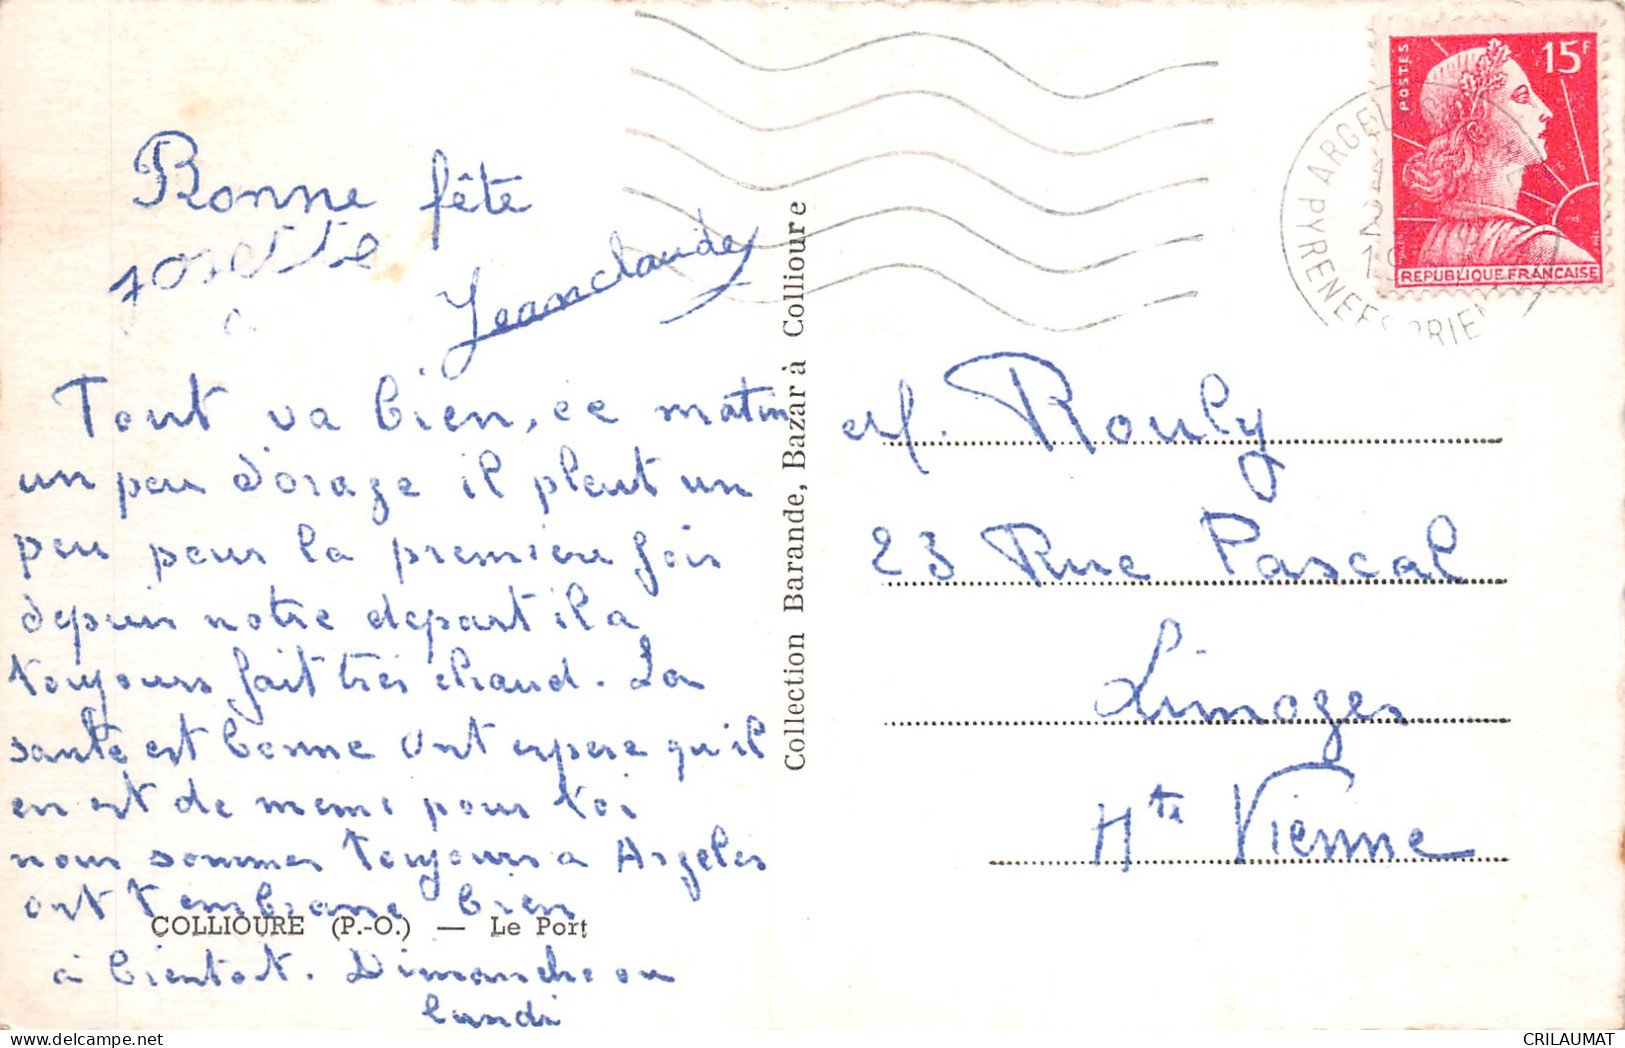 Bonne fête
Josette
Jean claude
Tout va bien, ce matin
un peu d'orage il pleut un
peu pour la premiere fois
depuis notre depart il a
toujours fait très chaud. La
santé est bonne ont espere qu'il
en est de meme pour toi
nous sommes toujours a Argeles
ont t'embrasse bien
COLLIOURE (P.-O.) — Le Port
à bientot. Dimanche ou
lundi
Collection Barande, Bazar à Collioure
POSTES
15F
REPUBLIQUE FRANCAISE
PYRENEES ORIEN
M. Rouly
23 Rue Pascal
Limoges
Hte Vienne
CRILAUMAT